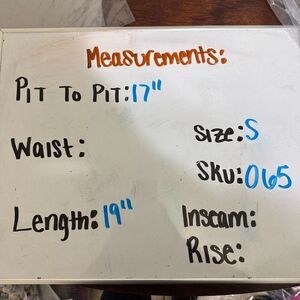 Measurements:
PIT TO PIT: 17"
Waist:
Size: S
SKU: 065
Length: 19"
Inseam:
Rise: